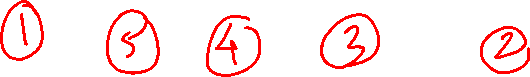 1 5 4 3 2